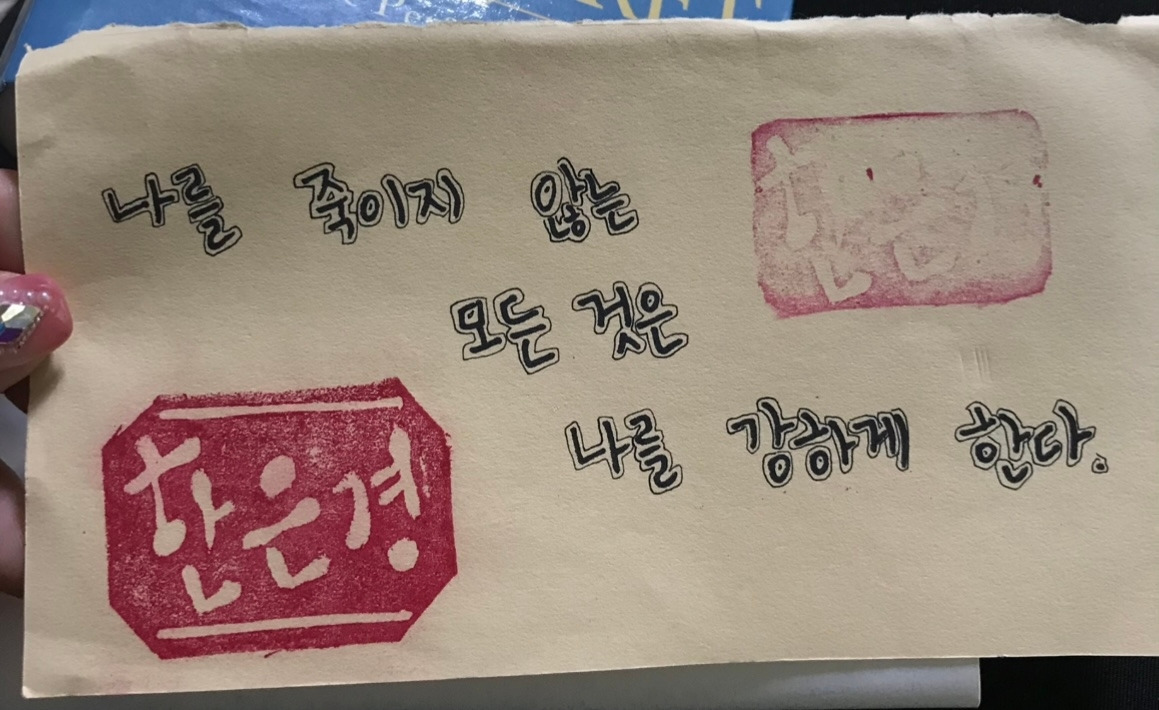 나를 죽이지 않는
모든 것은
나를 강하게 한다.
한은경